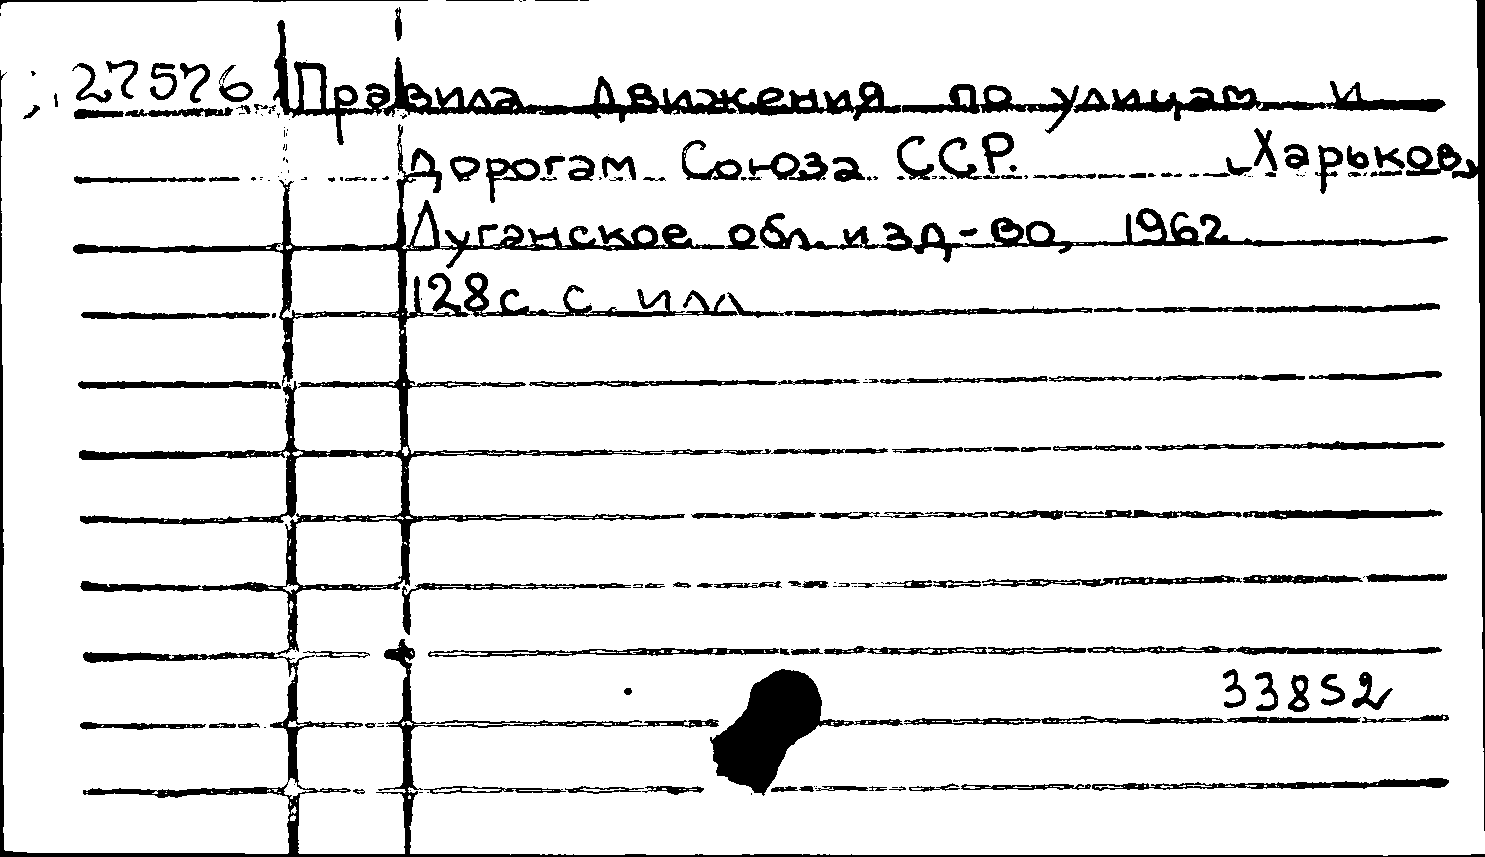 27576 Правила движения по улицам и
дорогам Союза ССР. Харьков,
Луганское обл. изд-во, 1962
128 с. с. илл
33852